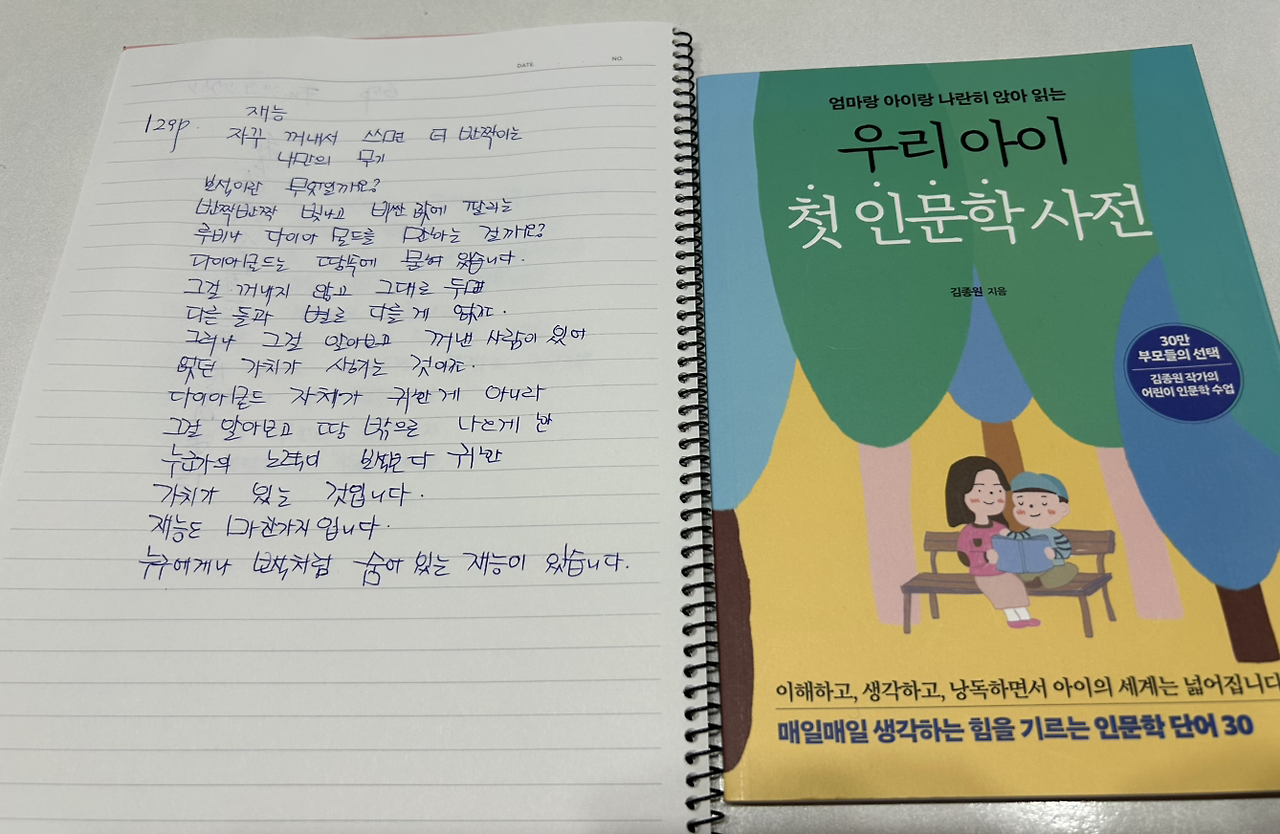 DATE
NO.
129p.
재능
자꾸 꺼내서 쓰면 더 반짝이는
나만의 무기
보석이란 무엇일까요?
반짝반짝 빛나고 비싼 값에 팔리는
루비나 다이아몬드를 말하는 걸까요?
다이아몬드는 땅속에 묻혀 있습니다.
그걸 꺼내지 않고 그대로 두면
다른 돌과 별로 다를 게 없죠.
그러나 그걸 알아보고 꺼낸 사람이 있어
없던 가치가 생기는 것이죠.
다이아몬드 자체가 귀한 게 아니라
그걸 알아보고 땅 밖으로 나오게 한
누군가의 노력이 보석보다 귀한
가치가 있는 것입니다.
재능도 마찬가지입니다.
누구에게나 보석처럼 숨어 있는 재능이 있습니다.
엄마랑 아이랑 나란히 앉아 읽는
우리 아이
첫 인문학 사전
김종원 지음
30만
부모들의 선택
김종원 작가의
어린이 인문학 수업
이해하고, 생각하고, 낭독하면서 아이의 세계는 넓어집니다
매일매일 생각하는 힘을 기르는 인문학 단어 30